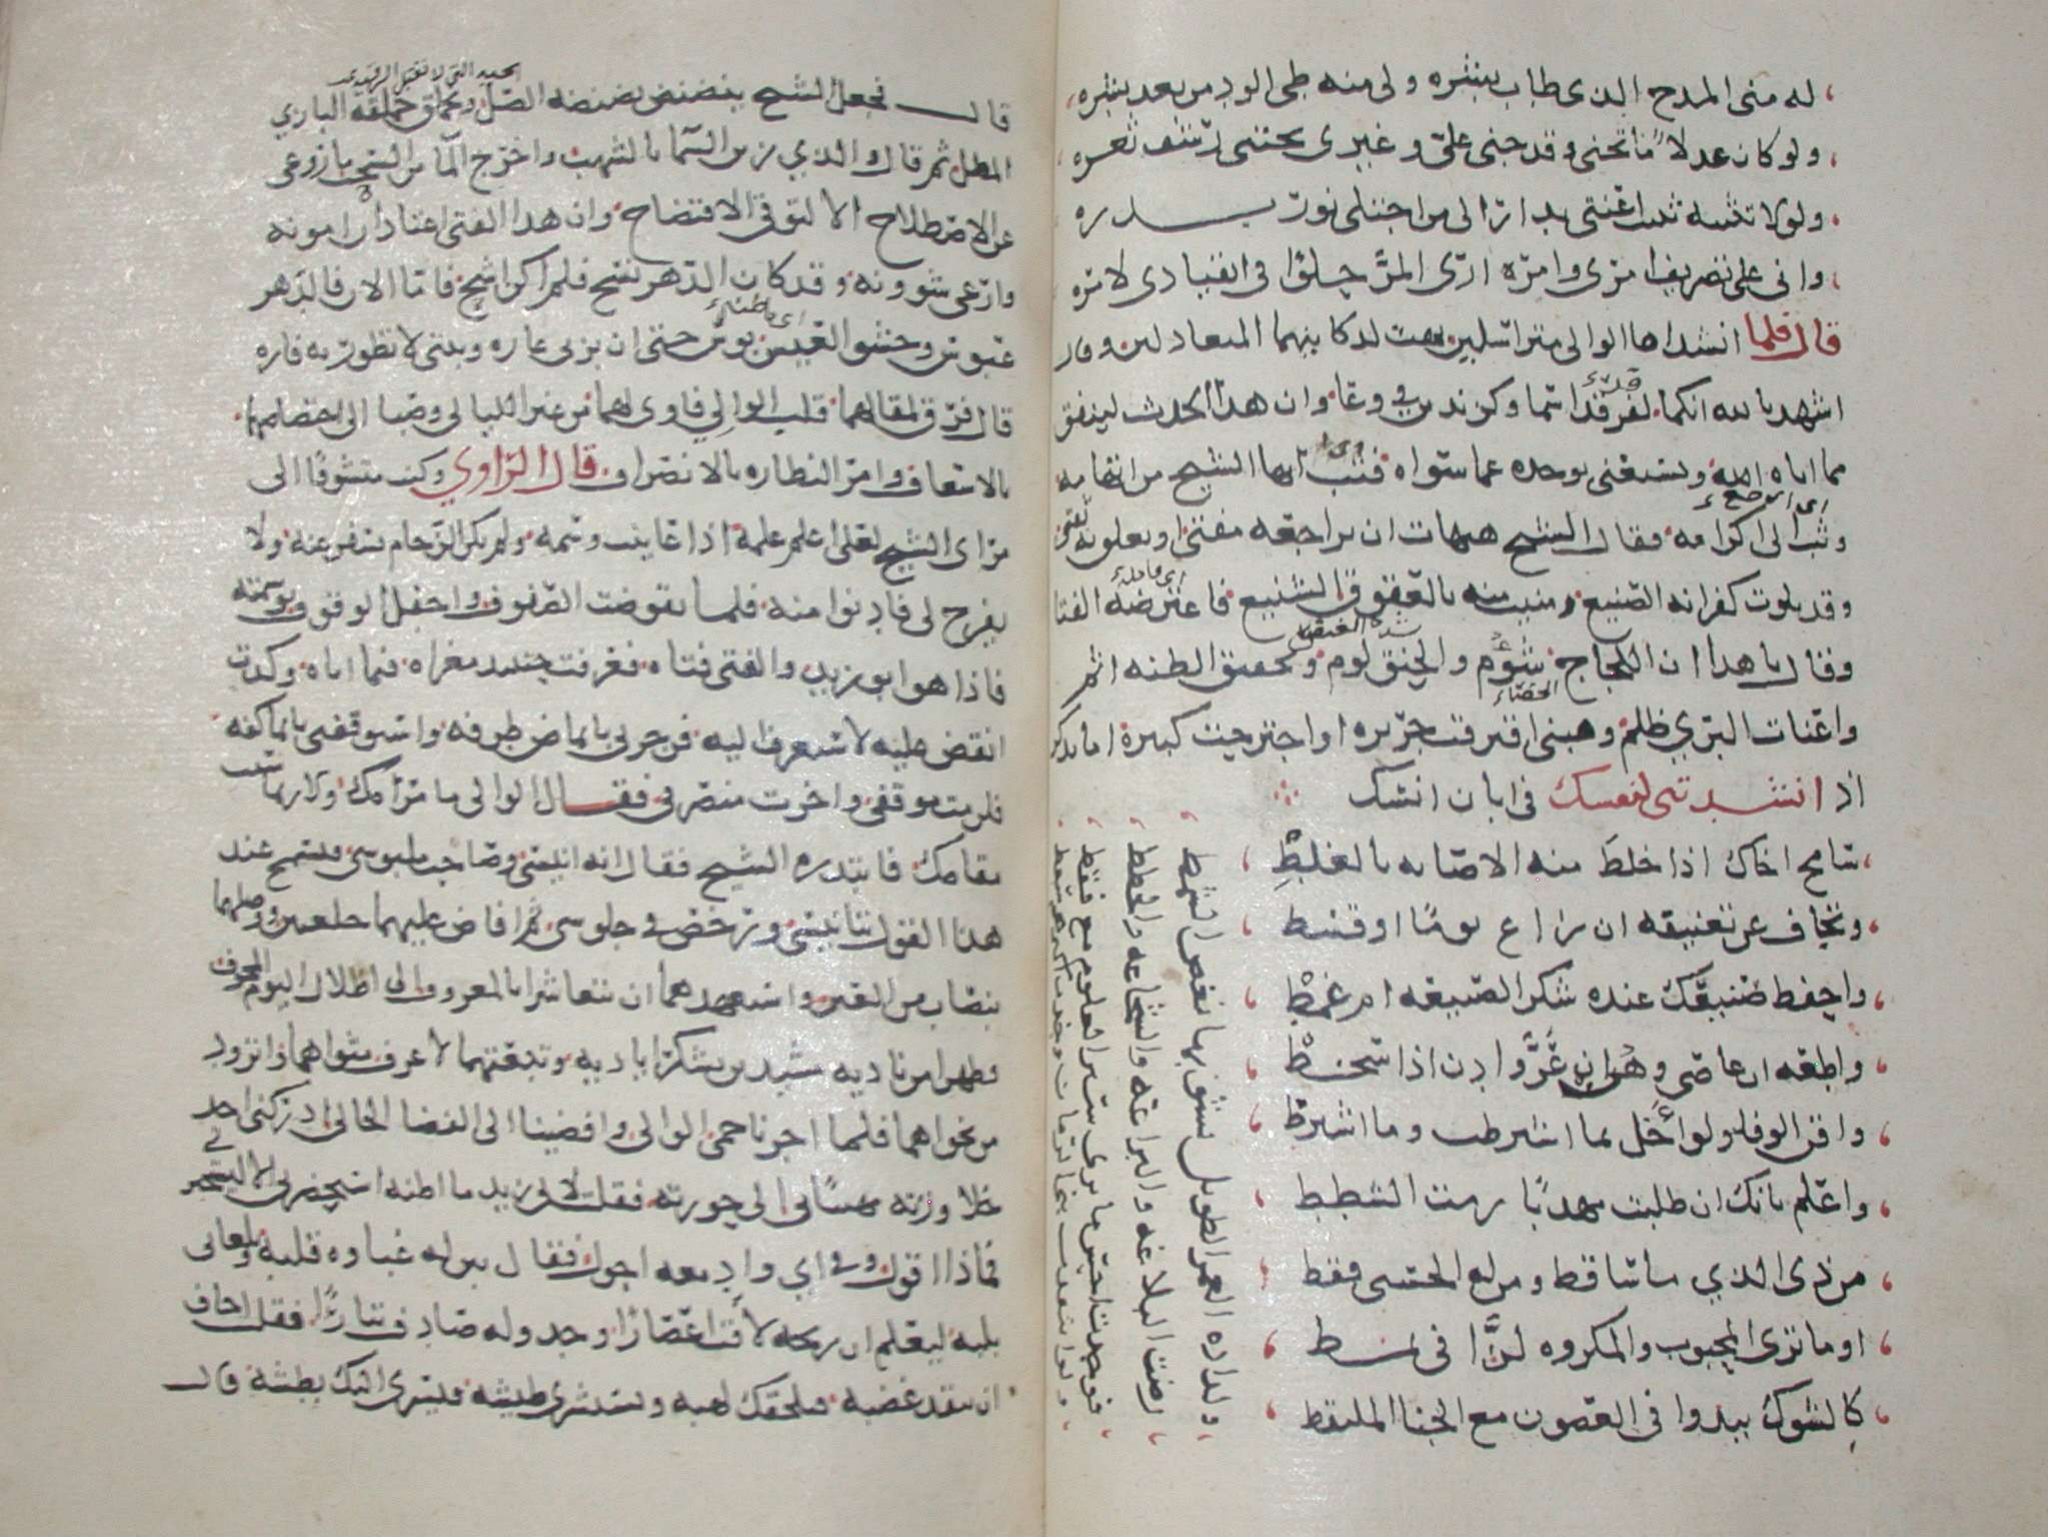 له منى المدح الذى طاب بنشره ولى منه طى الود من بعد بنشره
ولو كان عدلا ما تجنى وقد جنى على وغيرى يجتنى رشف ثغره
ولولا تثنيه ثنيت اعنتى بدارا الى من اجتلى نور بدره
وانى على تصريف امرى وامره ارى المر حلوا فى انقيادى لامره
قال فلما انشداها الوالى متراسلين بهت لذكايهما المتعادلين وقال
اشهد بالله انكما لفرقدا سما وكزندين في وعا وان هذا الحدث لينفق
مما اتاه الله ويستغنى بوجده عما سواه فتب ايها الشيخ من اتهامه
وثب الى اكرامه فقال الشيخ هيهات ان تراجعه مقتى او يعلق به ثقتى
وقد بلوت كفرانه الصنيع ومنيت منه بالعقوق الشنيع فاعترضه الفتا
وقال يا هذا ان اللجاج شؤم والحنق لوم وتحقيق الظنه اثم
واعنات البري ظلم وهبنى اقترفت جريره او اجترحت كبيرة اما تذكر
اذ انشدتنى لنفسك فى ابان انسك
سامح اخاك اذا خلط منه الاصابه بالغلط
وتجاف عن تعنيفه ان زاغ يوما او قسط
واحفظ صنيعك عنده شكر الصنيعه ام غمط
واطعه ان عاصى وهن ان عز وادن اذا شحط
واقن الوفا ولو اخل بما اشترطت وما اشترط
واعلم بانك ان طلبت مهذبا رمت الشطط
من ذى الذي ما ساقط ومن له الحسنى فقط
او ما ترى المحبوب والمكروه لزا فى نمط
كالشوك يبدوا فى الغصون مع الجنا الملتقط
ولذاذه العمر الطويل يشوبها نغص الشمط
رضت البلاغه والبراعه والشجاعه والخطط
فوجدت احسن ما يرى سبر العلوم مع فقط
قال فجعل الشيخ ينضنض نضنضه الصل ويحملق حملقه البازي
الحيه التى لا تقبل الرقيه
المطل ثم قال والذي زين السما بالشهب وانزل الما من السحب ما زوغى
عن الاصطلاح الا لتوقى الافتضاح وان هذا الفتى اعتاد ان امونه
وارعى شوونه وقد كان الدهر يسح فلم اكن اشح فاما الان فالدهر
عبوس وحشو العيش بوس حتى ان بزتى عاره وبيتى لا تطور به فاره
قال فرق لمقالهما قلب الوالي واوى لهما من غير الليالى وصبا الى اختصاصهما
بالاسعاف وامر النظاره بالانصراف قال الراوي وكنت متشوفا الى
مراى الشيخ لعلى اعلم علمه اذا عاينت وسمه ولم يكن الزحام يسفر عنه ولا
يفرج لى فادنوا منه فلما تقوضت الصفوف واجفل الوقوف توسمته
فاذا هو ابو زيد والفتى فتاه فعرفت حينئذ مغزاه فيما اتاه وكدت
انقض عليه لاستعرف اليه فزجرنى بايماض طرفه واستوقفنى بايما كفه
فلزمت موقفى واخرت منصرفى فقال الوالى ما مرامك ولاى سبب
مقامك فابتدره الشيخ فقال انه انيسى وصاحب ملبوسى فتسمح عند
هذا القول بتانيسى ورخص في جلوسى ثم افاض عليهما خلعتين ووصلهما
بنصاب من العين واستعهدهما ان يتعاشرا بالمعروف الى اظلال اليوم المخوف
فنهضا من ناديه منشدين بشكر اياديه وتبعتهما لاعرف مثواهما واتزود
من نجواهما فلما اجزنا حمى الوالى وافضينا الى الفضا الخالى ادركنى احد
جلاوزته مهيبا بى الى حوزته فقلت لابى زيد ما اظنه استحضرنى الا ليستخبر
فماذا اقول وفى اي واد معه اجول فقال بين له غباوه قلبه وتلعابى
بلبه ليعلم ان ريحه لاقت اعصارا وجدوله صادف تيارا فقلت اخاف
ان يتقد غضبه فيلحقك لهبه ويستشرى طيشه فيسرى اليك بطشه قال